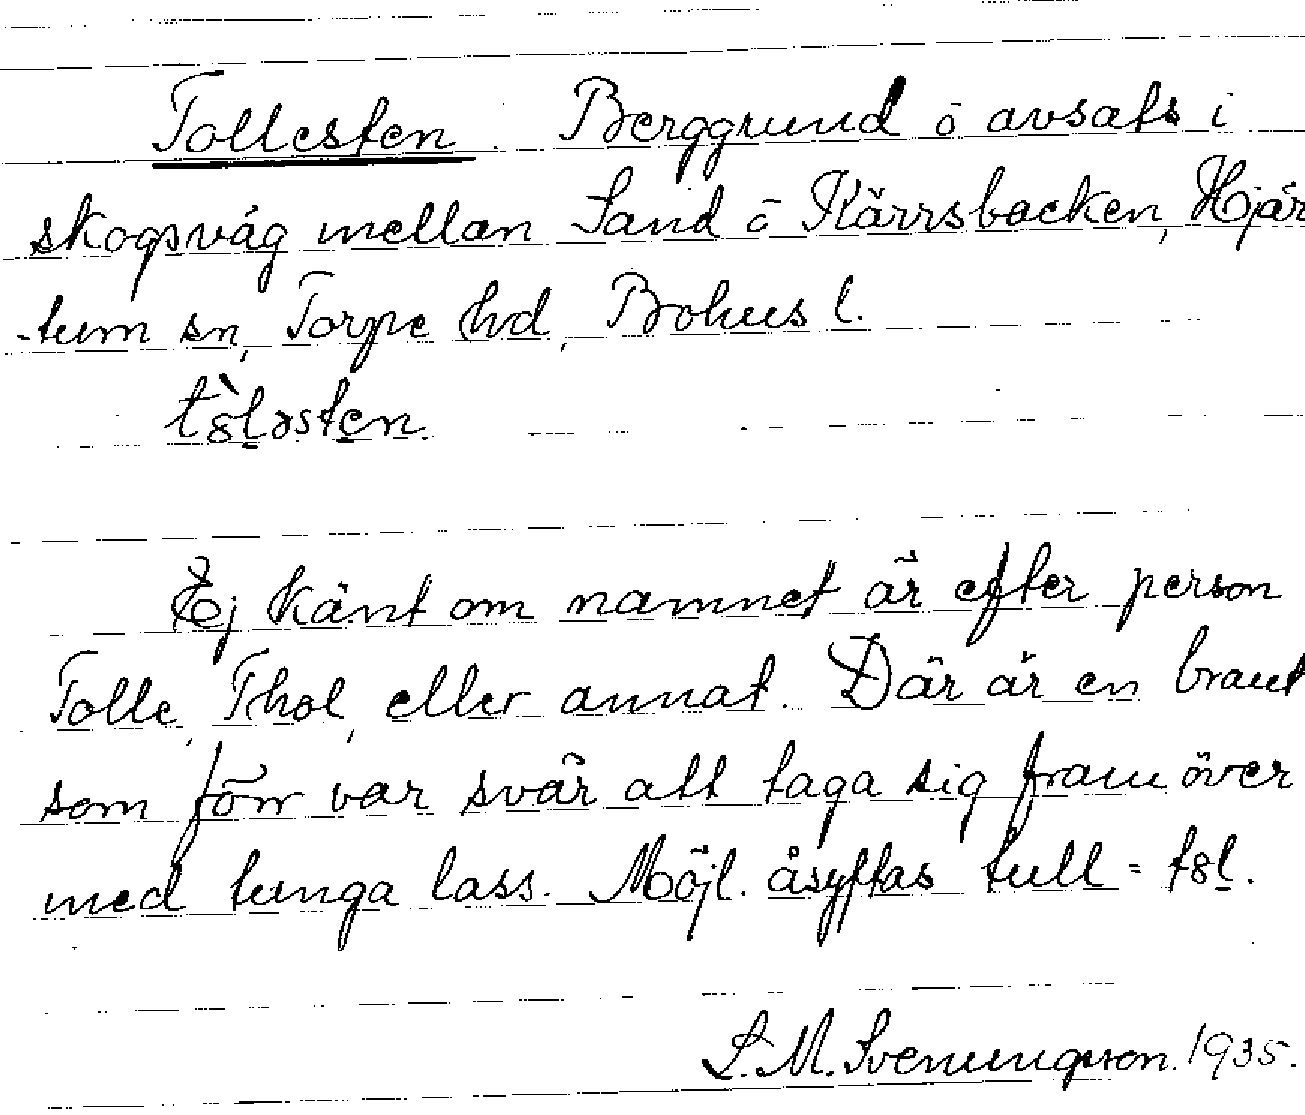 Tollesten. Berggrund o avsats i
skogsväg mellan Sand o Kärrsbacken, Hjär
-tum sn, Torpe hd, Bohus l.
tò̀8ləsten.
Ej känt om namnet är efter person
Tolle, Thol, eller annat. Där är en brant
som förr var svår att taga sig fram över
med tunga lass. Möjl. åsyftas tull = t8l.
L. M. Svenungsson. 1935.